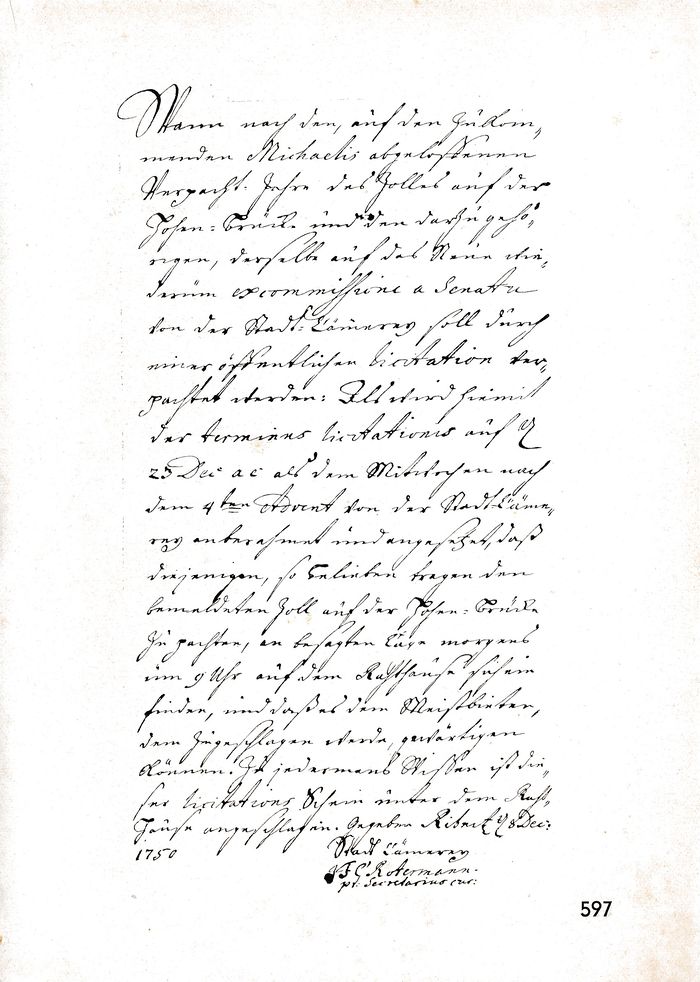 Wann nach den, auf den zukom„
menden Michaelis abgeloffenen
Verpacht. Jahre des Zolles auf der
Hohen-Brücke und den darzu gehö„
rigen, derselbe auf das Neue wie„
derum ex commissione a Senatu
von der Stadt-Cämerey soll durch
einer öffentlichen licitation ver„
pachtet werden: Als wird hiemit
der terminus licitationis auf
23 Dec: a c als dem Mittwochen nach
dem 4ten Advent von der Stadt-Cäme„
rey anberahmet und angesetzet, daß
diejenigen, so belieben tragen den
bemeldeten Zoll auf der Hohen-Brücke
zu pachten, an besagten Tage morgens
um 9 Uhr auf dem Rahthause sich ein
finden, und daß es dem Meistbieten„
dem zugeschlagen werde, gewärtigen
können. Zu jedermans Wissen ist die„
ser licitations Schein unter dem Raht„
hause angeschlagen. Gegeben Ribnitz 8 Dec:
1750
Stadt Cämerey
Rotermann.
pt: Secretarius cur:
597